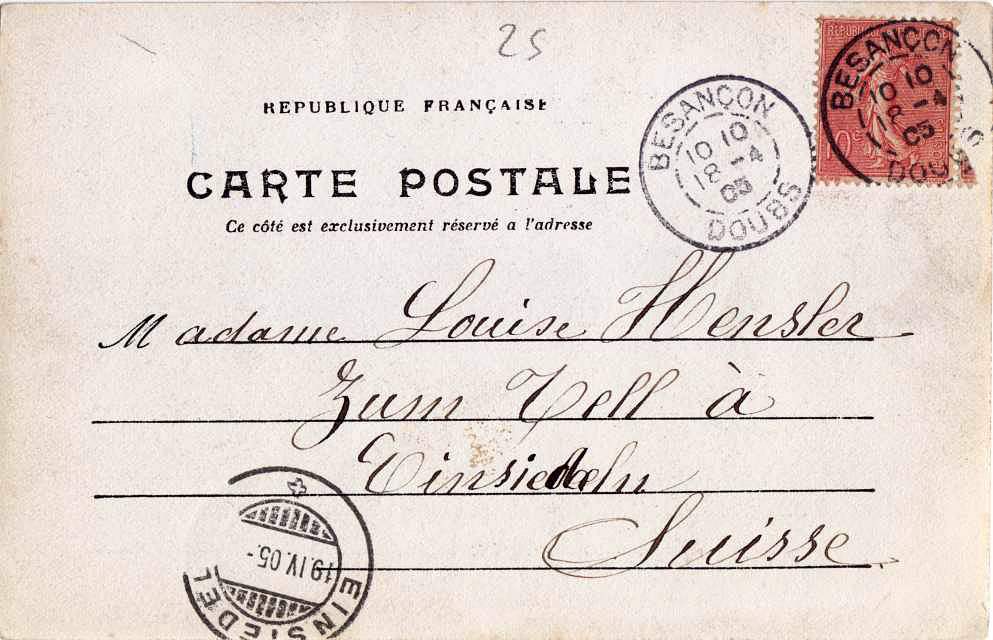 25
REPUBLIQUE FRANÇAISE
CARTE POSTALE
Ce côté est exclusivement réservé a l'adresse
BESANÇON
10 10
18 -4
05
DOUBS
BESANÇON
10 10
18 -4
05
DOUBS
10c
Madame Louise Hensler
Zum Tell à
Einsiedeln
Suisse
19.IV.05.-
EINSIEDEL